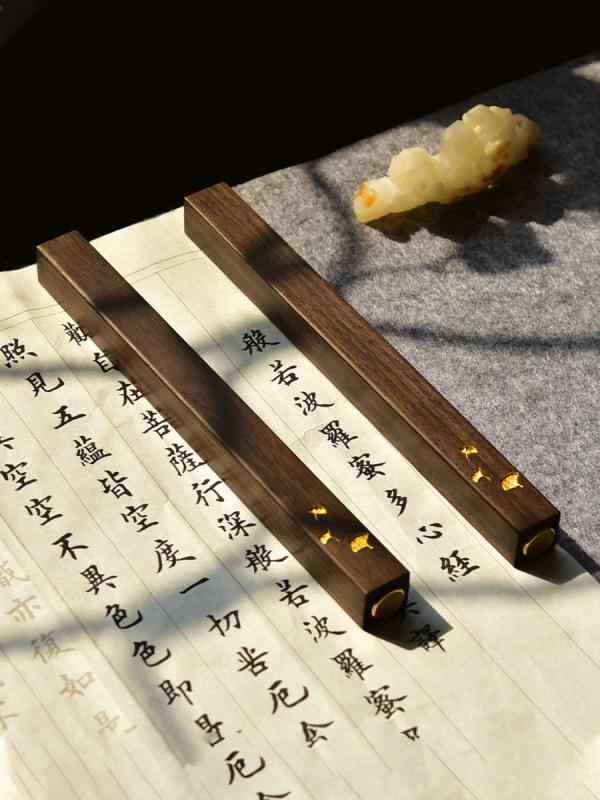 般若波羅蜜多心經
譯
觀自在菩薩行深般若波羅蜜
照見五蘊皆空度一切苦厄
空空不異色色即是厄
識亦復如是